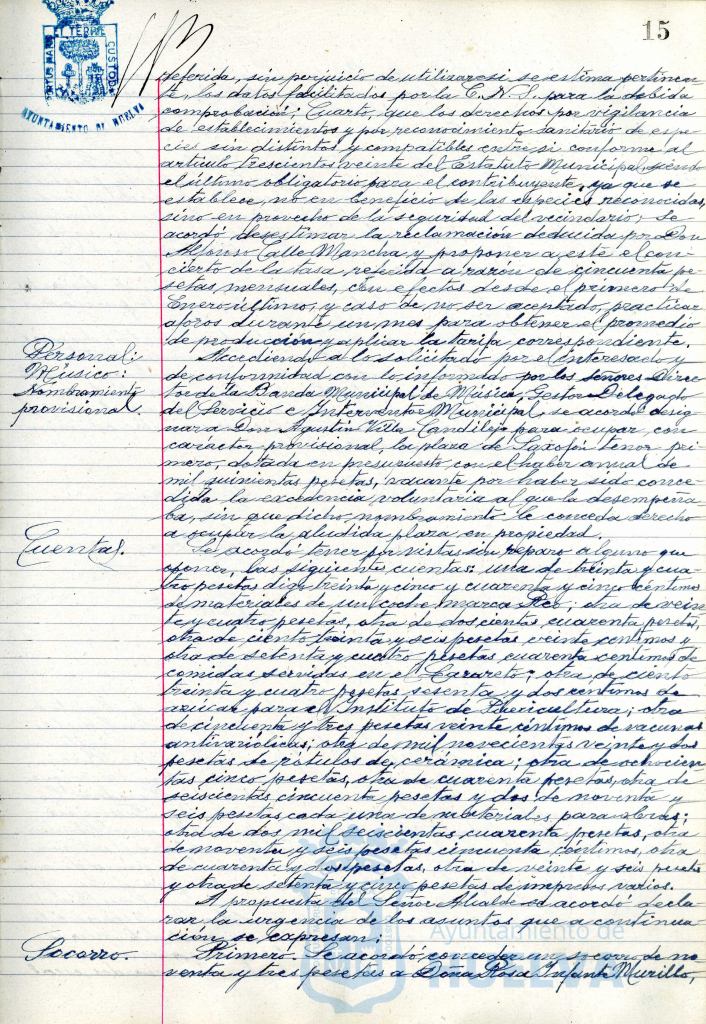 15
PORTUS MARIS ET TERRE CUSTODIA
AYUNTAMIENTO DE HUELVA
referida, sin perjuicio de utilizar si se estima pertinen-
te, los datos facilitados por la C.N.S. para la debida
comprobación; Cuarto, que los derechos por vigilancia
de establecimientos y por reconocimiento sanitario de espe-
cies sin distintos y compatibles entre si conforme al
articulo trescientos veinte del Estatuto Municipal, siendo
el último obligatorio para el contribuyente, ya que se
establece, no en beneficio de las especies reconocidas,
sino en provecho de la seguridad del vecindario, se
acordó desestimar la reclamación deducida por Don
Alfonso Calle Mancha y proponer a este el con-
cierto de la tasa referida a razón de cincuenta pe-
setas mensuales, con efectos desde el primero de
Enero último, y caso de no ser aceptado, practicar
aforos durante un mes para obtener el promedio
de producción y aplicar la tarifa correspondiente.
Personal:
Músico:
Nombramiento
provisional.
Accediendo a lo solicitado por el interesado y
de conformidad con lo informado por los señores Direc-
tor de la Banda Municipal de Música, Gestor Delegado
del Servicio e Interventor Municipal, se acordó desig-
nar a Don Agustín Villa Candilejo para ocupar, con
carácter provisional, la plaza de Saxofón tenor pri-
mero, dotada en presupuesto con el haber anual de
mil quinientas pesetas, vacante por haber sido conce-
dida la excedencia voluntaria al que la desempeña-
ba, sin que dicho nombramiento le conceda derecho
a ocupar la aludida plaza en propiedad.
Cuentas.
Se acordó tener por vistas sin reparo alguno que
oponer, las siguientes cuentas: una de treinta y cua-
tro pesetas digo treinta y cinco y cuarenta y cinco céntimos
de materiales de un coche marca Reo; otra de vein-
te y cuatro pesetas, otra de doscientas cuarenta pesetas,
otra de ciento treinta y seis pesetas veinte centimos y
otra de setenta y cuatro pesetas cuarenta centimos de
comidas servidas en el Lazareto; otra de ciento
treinta y cuatro pesetas sesenta y dos centimos de
azúcar para el Instituto de Puericultura; otra
de cincuenta y tres pesetas veinte céntimos de vacunas
antivariólicas; otra de mil novecientas veinte y dos
pesetas de rótulos de cerámica; otra de ochocien-
tas cinco pesetas, otra de cuarenta pesetas, otra de
seiscientas cincuenta pesetas y dos de noventa y
seis pesetas cada una de materiales para obras;
otra de dos mil seiscientas cuarenta pesetas, otra
de noventa y seis pesetas cincuenta céntimos, otra
de cuarenta y dos pesetas, otra de veinte y seis pesetas
y otra de setenta y cinco pesetas de impresos varios.
A propuesta del Señor Alcalde se acordó decla-
rar la urgencia de los asuntos que a continua-
ción se expresan:
Socorro.
Primero. Se acordó conceder un socorro de no-
venta y tres pesetas a Doña Rosa Infante Murillo,
Ayuntamiento de
HUELVA